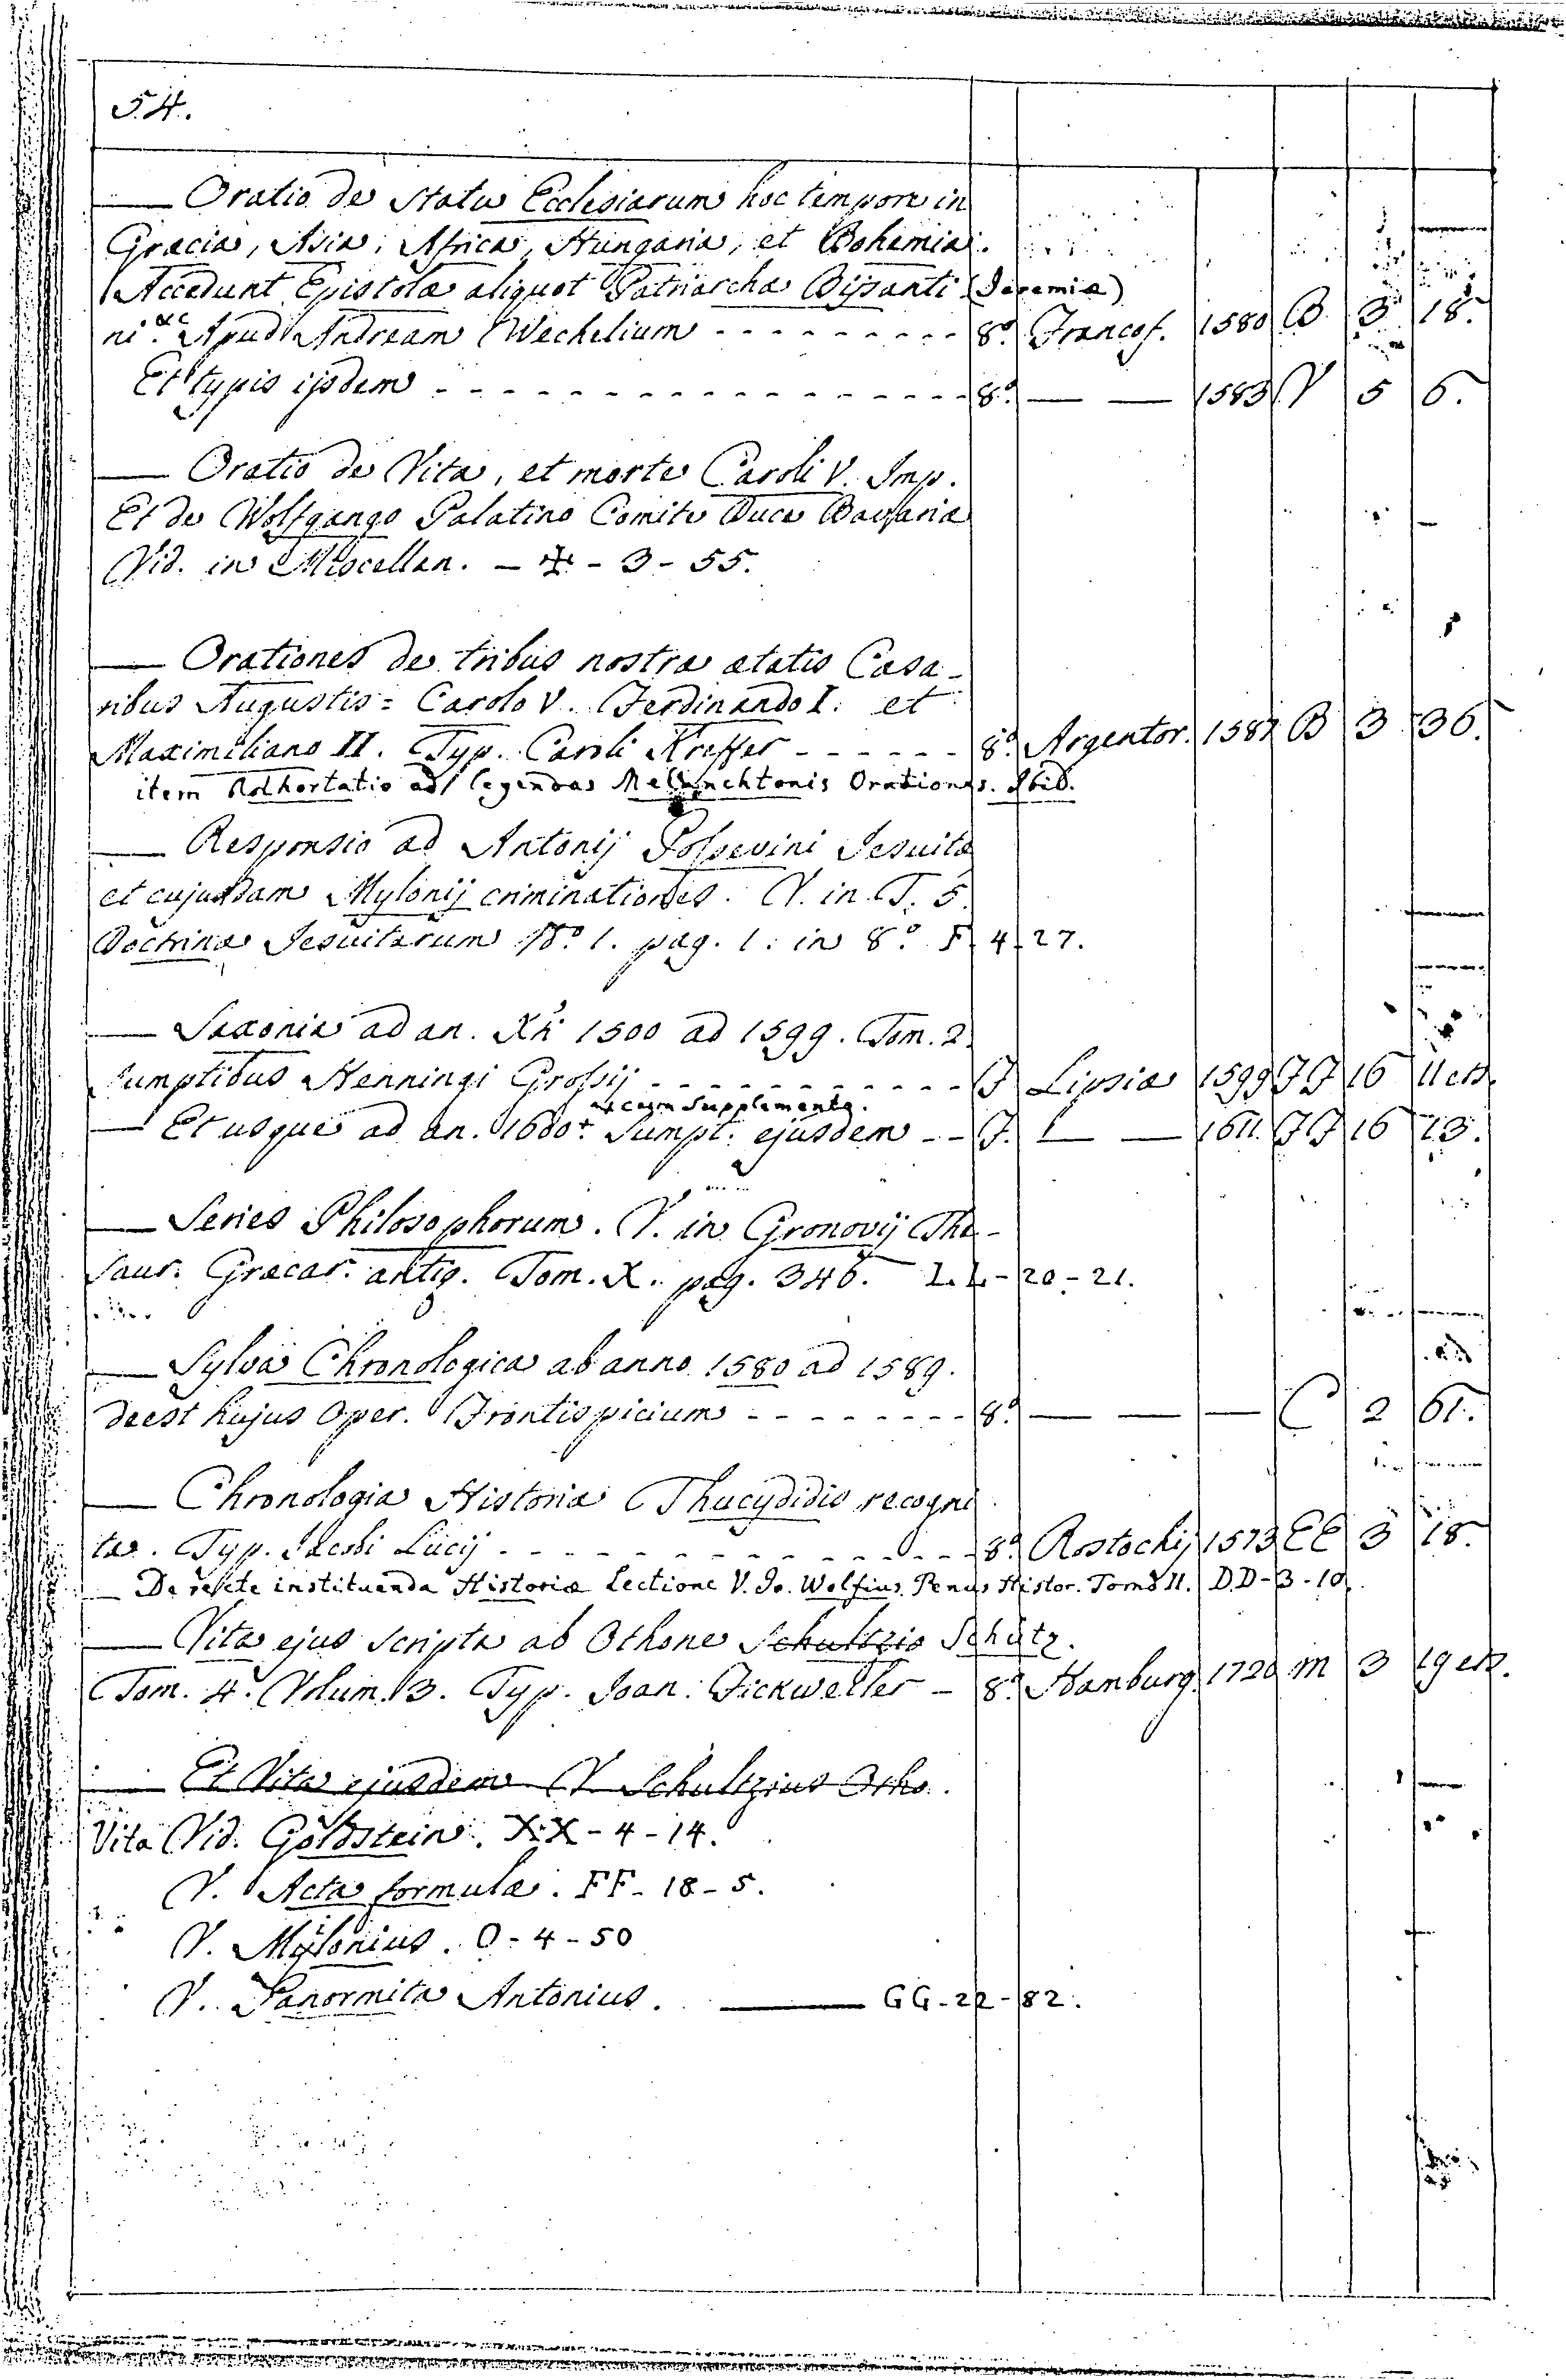 54.
— Oratio de Statu Ecclesiarum hoc tempore in
Græcia, Asia, Africa, Hungaria, et Bohemia.
Accedunt Epistolæ aliquot Patriarchæ Bisanti (Jeremiæ)
ni &c. Apud Andream Wechelium - - - - - - - - - 8.º Francof. 1580 B 3 18.
Et typis ijsdem - - - - - - - - - - - - - - - - - 8.º — — 1583 V 5 6.
— Oratio de Vita, et morte Caroli V. Imp.
Et de Wolfgango Palatino Comite Duce Bavariæ
Vid. in Miscellan. - - 3 - 55.
— Orationes de tribus nostræ ætatis Cæsa-
ribus Augustis = Carolo V. Ferdinando I. et
Maximiliano II. Typ. Caroli Kieffer - - - - - - 8.º Argentor. 1587 B 3 36.
item Adhortatio ad legendas Melanchtonis Orationes. Ibid.
— Responsio ad Antonij Possevini Jesuitæ
et cujusdam Mylonij criminationes. V. in T. 5.
Doctrinæ Jesuitarum Nº 1. pag. 1. in 8.º F 4 27.
— Saxonia ad an. Xti 1500 ad 1599. Tom. 2
sumptibus Henningi Grossij - - - - - - - - - - - F Lipsiæ 1599 FF 16 11 et 12.
et cum Supplemento.
— Et usque ad an. 1600. + Sumpt. ejusdem - - F. — — 1611. FF 16 13.
— Series Philosophorum. V. in Gronovij The-
saur. Græcar. antiq. Tom. X. pag. 346. LL - 20 - 21.
— Sylva Chronologica ab anno 1580 ad 1589.
deest hujus Oper. Frontispicium - - - - - - - - 8.º — — — C 2 61.
— Chronologia Historiæ Thucydidis recogni
ta. Typ. Jacobi Lucij - - - - - - - - - - - - - 8.º Rostochij 1573 EE 3 18.
— De recte instituenda Historiæ Lectione V. Jo. Wolfius. Penus Histor. Tomo II. DD - 3 - 10.
— Vita ejus scripta ab Othone Schultzio Schütz.
Tom. 4. Volum. 3. Typ. Joan. Fickweller - 8.º Hamburg. 1720 m 3 19 et 2.
— Et Vita ejusdem V Schultzius Otho.
Vita Vid. Goldstein. XX - 4 - 14.
V. Acta formulæ. FF - 18 - 5.
V. Mylonius. O - 4 - 50
V. Panormita Antonius. — GG - 22 - 82.